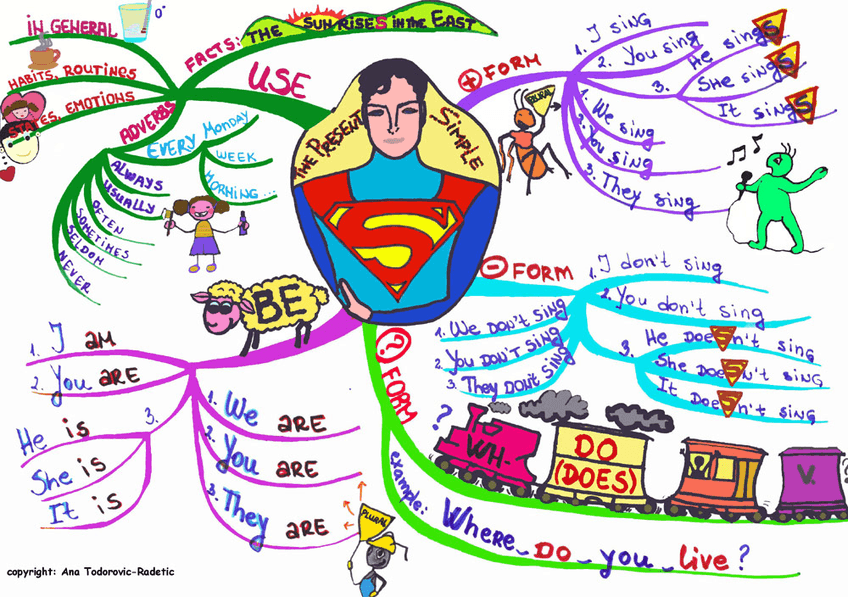 THE PRESENT SIMPLE
S
USE
IN GENERAL
0°
FACTS: THE SUN RISES IN THE EAST
HABITS, ROUTINES
STATES, EMOTIONS
ADVERBS
EVERY MONDAY
WEEK
MORNING...
ALWAYS
USUALLY
OFTEN
SOMETIMES
SELDOM
NEVER
+ FORM
1. I sing
2. You sing
3.
He singS
She singS
It singS
PLURAL
1. We sing
2. You sing
3. They sing
- FORM
1. I don't sing
2. You don't sing
3.
He DoeSn't sing
She DoeSn't sing
It DoeSn't sing
1. We DON'T SING
2. You DON'T SING
3. They DON'T SING
BE
1. I AM
2. You ARE
3.
He is
She is
It is
1. We ARE
2. You ARE
3. They ARE
PLURAL
? FORM
?
WH-
DO
(DOES)
V.
?
example:
Where DO you live?
copyright: Ana Todorovic-Radetic